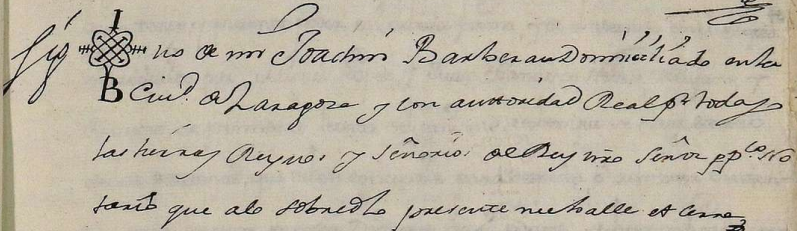 Sig I B no de mi Joachin Barberan Domiciliado en la
Ciud. de Zaragoza y con authoridad Real pr. todas
las tierras Reynos y Señorios de Rey nro Señor ppco. No
tario que a lo sobredho presente me halle et cerre